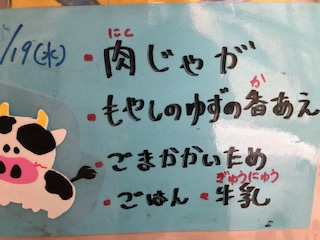 /19(水)
にく
・肉じゃが
か
・もやしのゆずの香あえ
・ごまかかいため
ぎゅうにゅう
・ごはん・牛乳